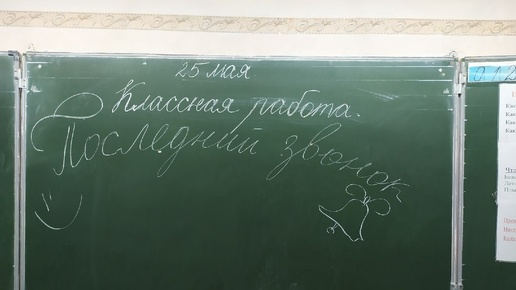 25 мая
Классная работа.
Последний звонок
0 1 2